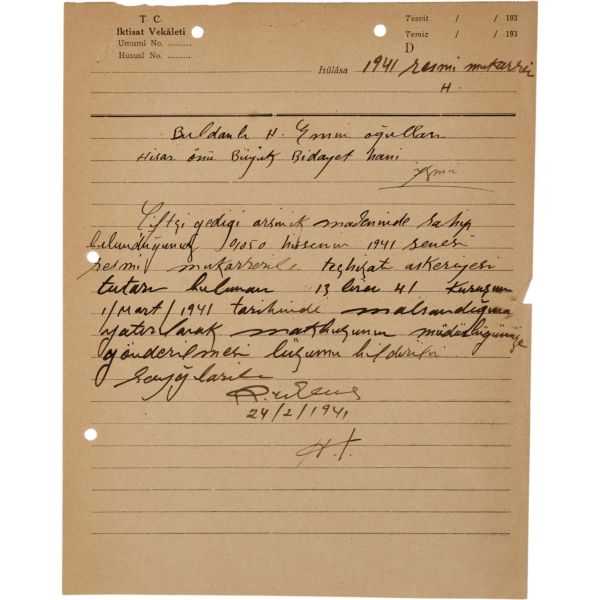 T. C.
İktisat Vekâleti
Umumî No. .........
Hususî No. .........
Tesvit / / 193
Temiz / / 193
D
Hülâsa 1941 resmi mukarrer
H.
Buldanlı H. Emin oğulları
Hisar önü Büyük Bidayet hani
Çiftçi gediği arsenik madeninde sahip
bulunduğunuz %050 hissenin 1941 senesi
resmi mukarrerile teçhizat askeriyesi
tutarı bulunan 13 lira 41 Kuruşun
1/Mart/1941 tarihinde malsandığına
yatırılarak makbuzunun müdürlüğümüze
gönderilmesi lüzumu bildirilir
Saygılarile
24/2/1941
H.T.